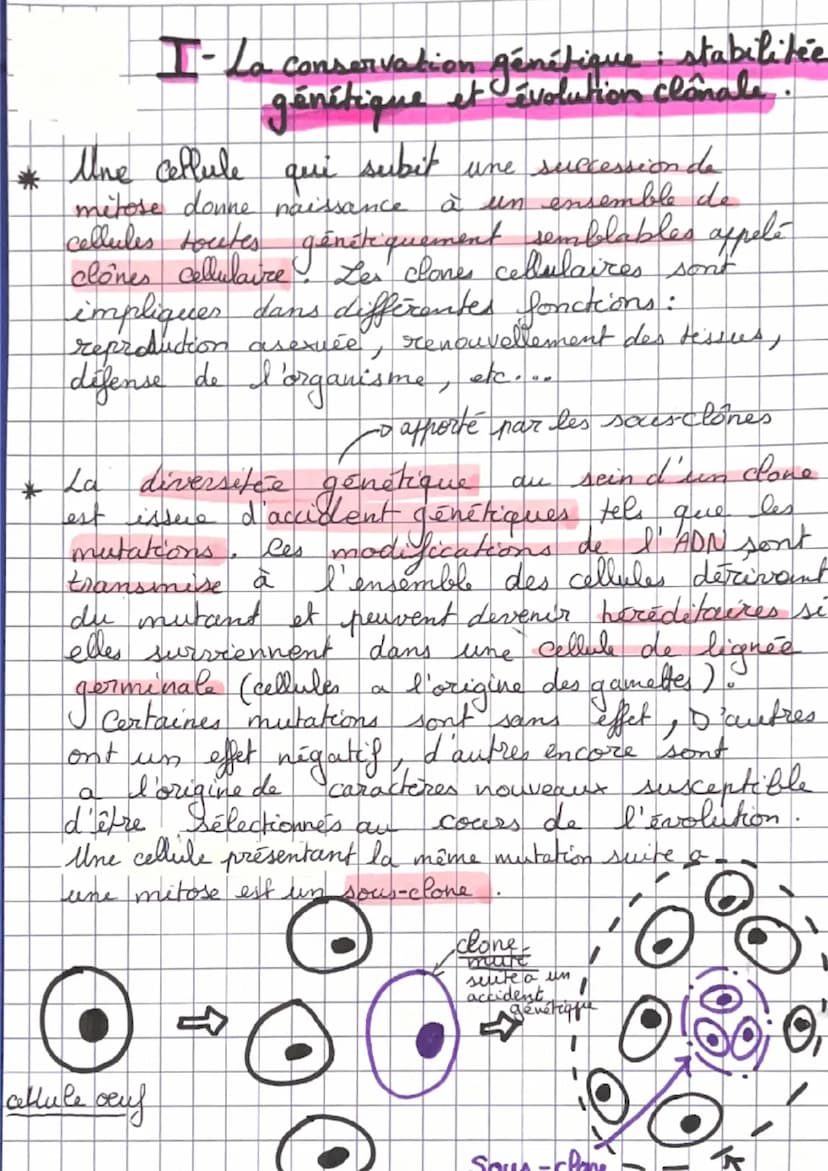 I- La conservation génétique : stabilitée
génétique et évolution clônale.
* Une cellule qui subit une succession de
mitose donne naissance à un ensemble de
cellules toutes génétiquement semblables appelé
clônes cellulaire. Les clones cellulaires sont
impliques dans différentes fonctions :
reproduction asexuée, renouvellement des tissus,
défense de l'organisme, etc....
→ apporté par les sous-clônes
* La diversitée génétique au sein d'un clone
est issue d'accident génétiques tels que les
mutations. Ces modifications de l'ADN sont
transmise à l'ensemble des cellules dérivant
du mutant et peuvent devenir héréditaires si
elles surviennent dans une cellule de lignée
germinale (cellules a l'origine des gamettes).
Certaines mutations sont sans effet, D'autres
ont un effet négatif, d'autres encore sont
a l'origine de caractères nouveaux susceptible
d'être sélectionnés au cours de l'évolution.
Une cellule présentant la même mutation suite a
une mitose est un sous-clone.
clone
muté
suite a un
accident
génétique
cellule oeuf
Sous-clone